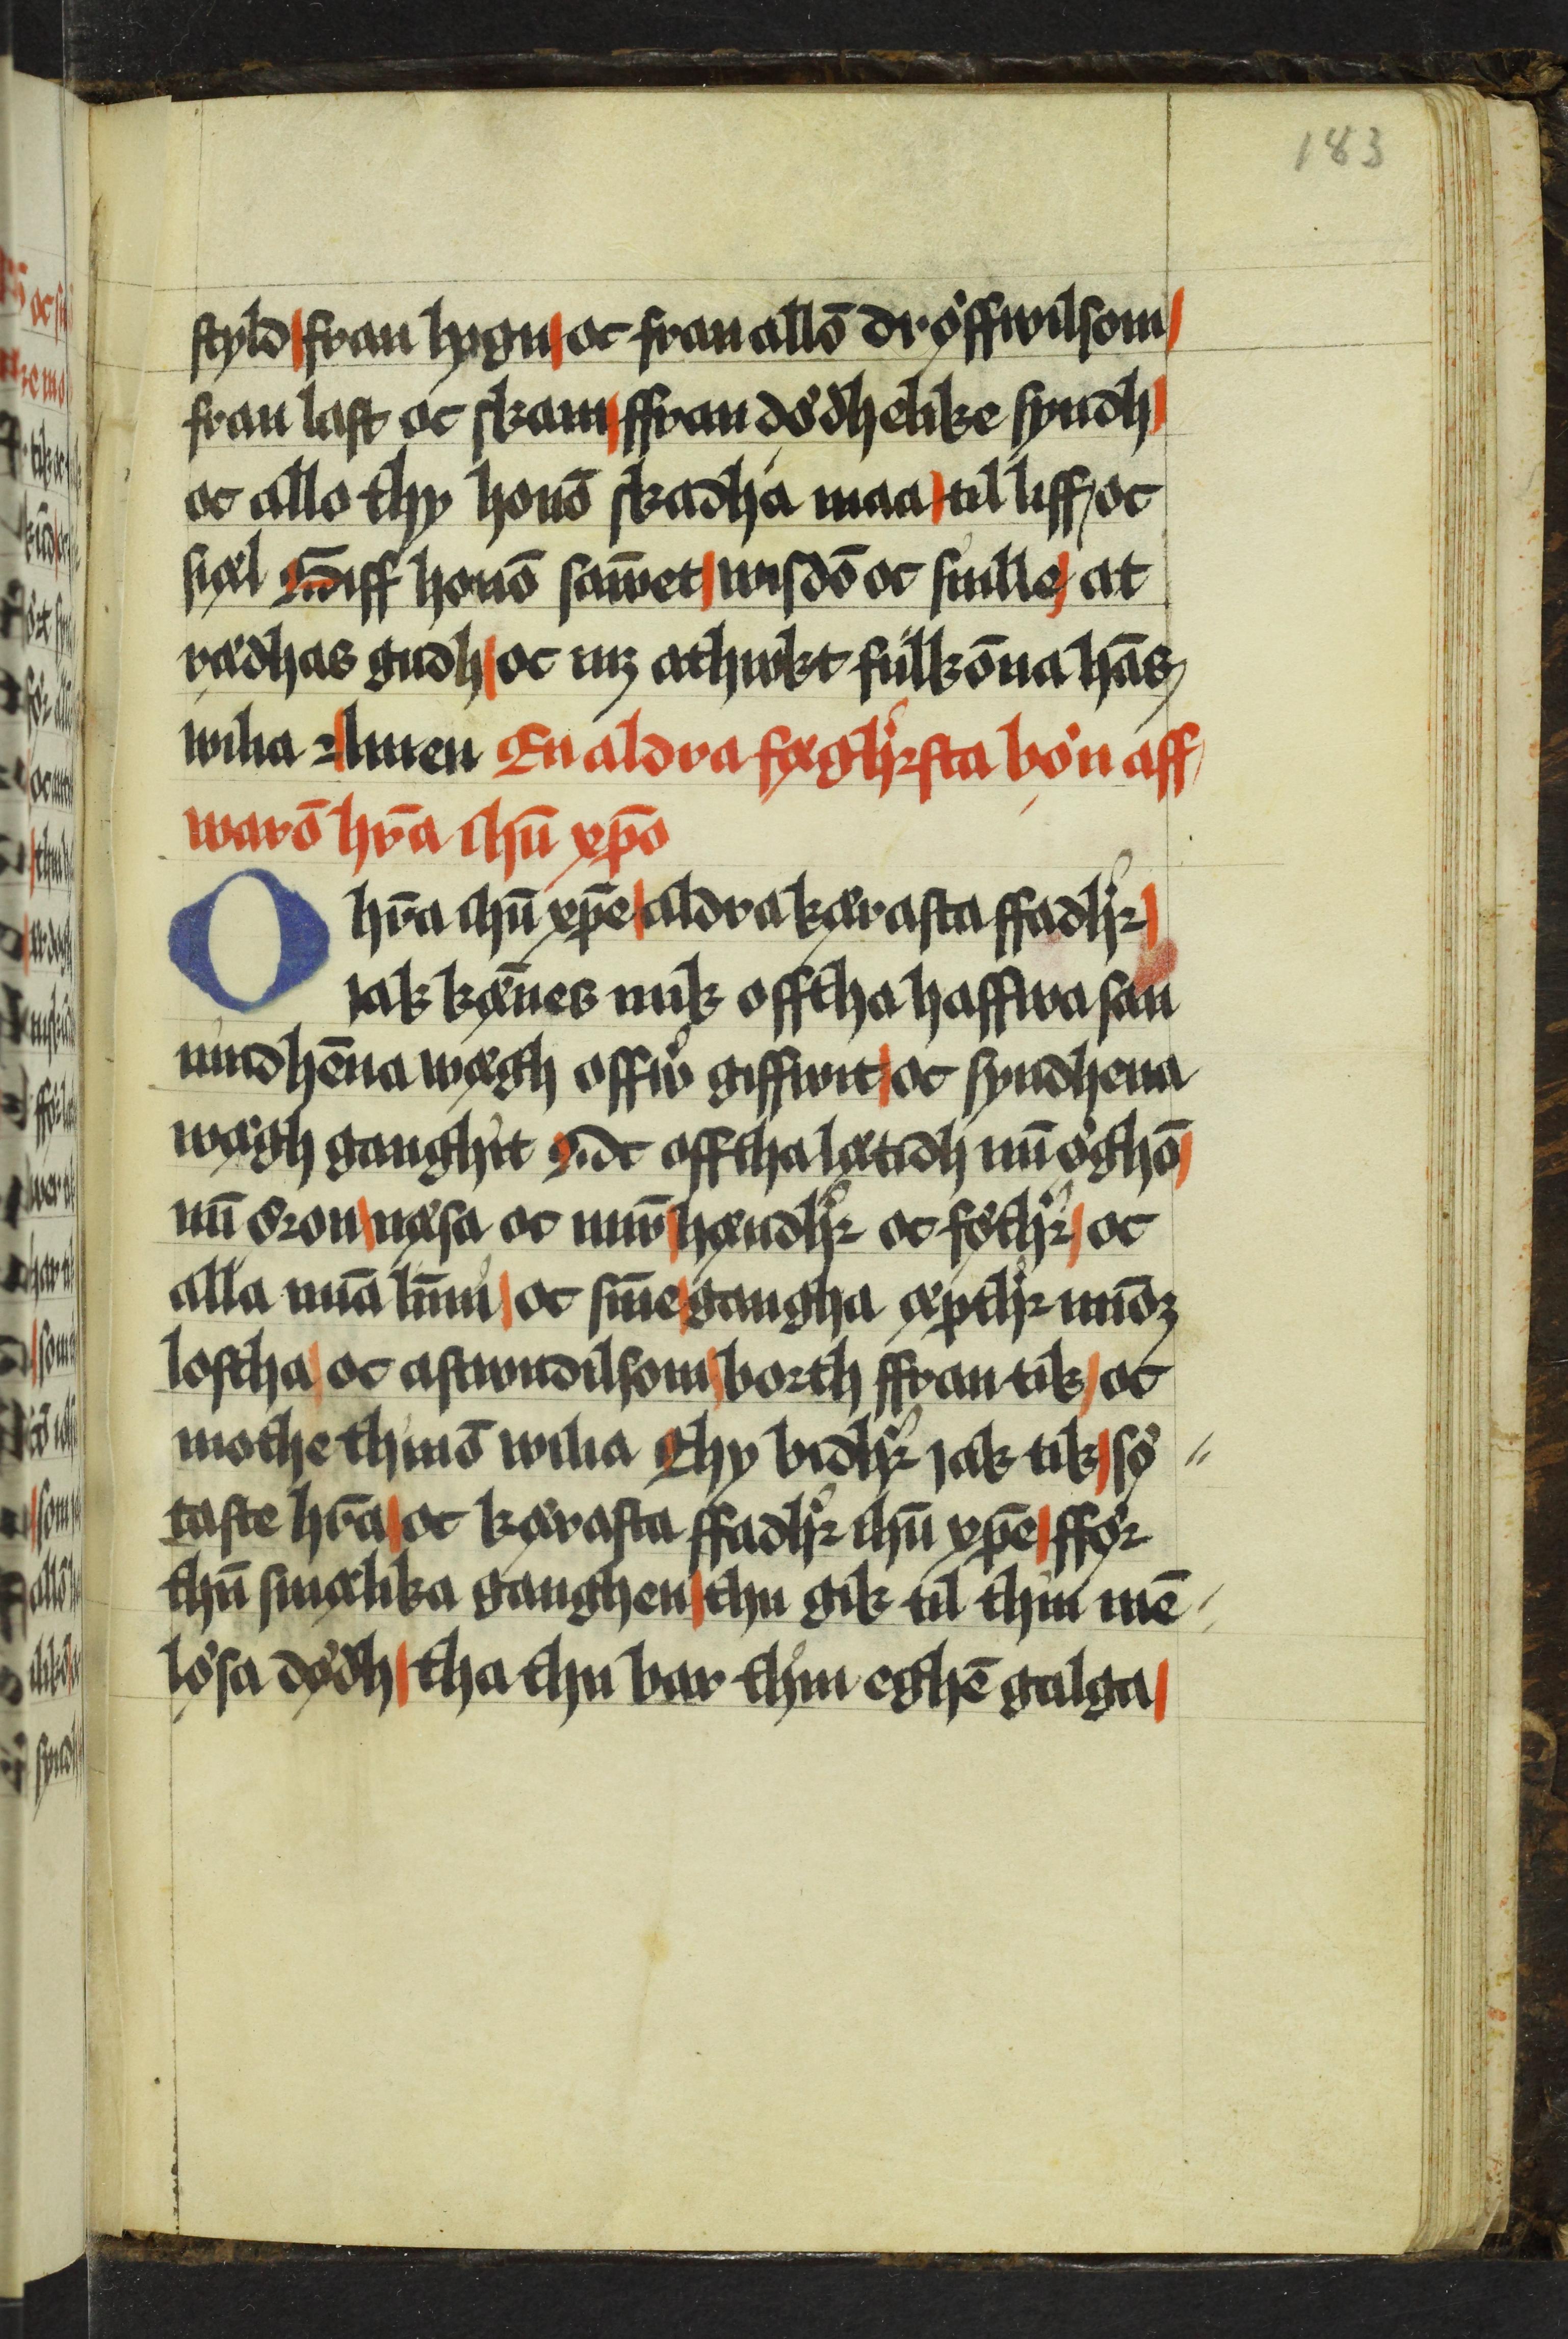 183
styld fran lygn oc fran allō dröffwilsom
fran last oc skam ffran dödhelike syndh
oc allo thy honō skadha maa til liff oc
siæl Giff honō sāwet wisdō oc snille at
rædhas gudh oc mz athwkt fulkōna hās
wilia Amen En aldra fægh̄rsta bön aff
warō hr̄a ihū xpō
O hr̄a ihū xpē aldra kærasta ffadh̄r
iak kæn̄es mik offtha haffwa san
nindhēna wægh offw̄ giffwit oc syndhena
wægh ganghit Oc offtha lætidh mī öghō
mī öron næsa oc mwn̄ hændh̄r oc föth̄r oc
alla mīa lim̄i oc sin̄e gangha æpth̄r minōz
lostha oc astwndilsom borth ffran tik oc
mothe thinō wilia Thy bidh̄r iak tik sö
taste hr̄a oc kærasta ffadh̄r ihū xpē ffor
thn̄ smælika ganghen thu gik til thin mē
lösa dödh tha thu bar thin eghē galga